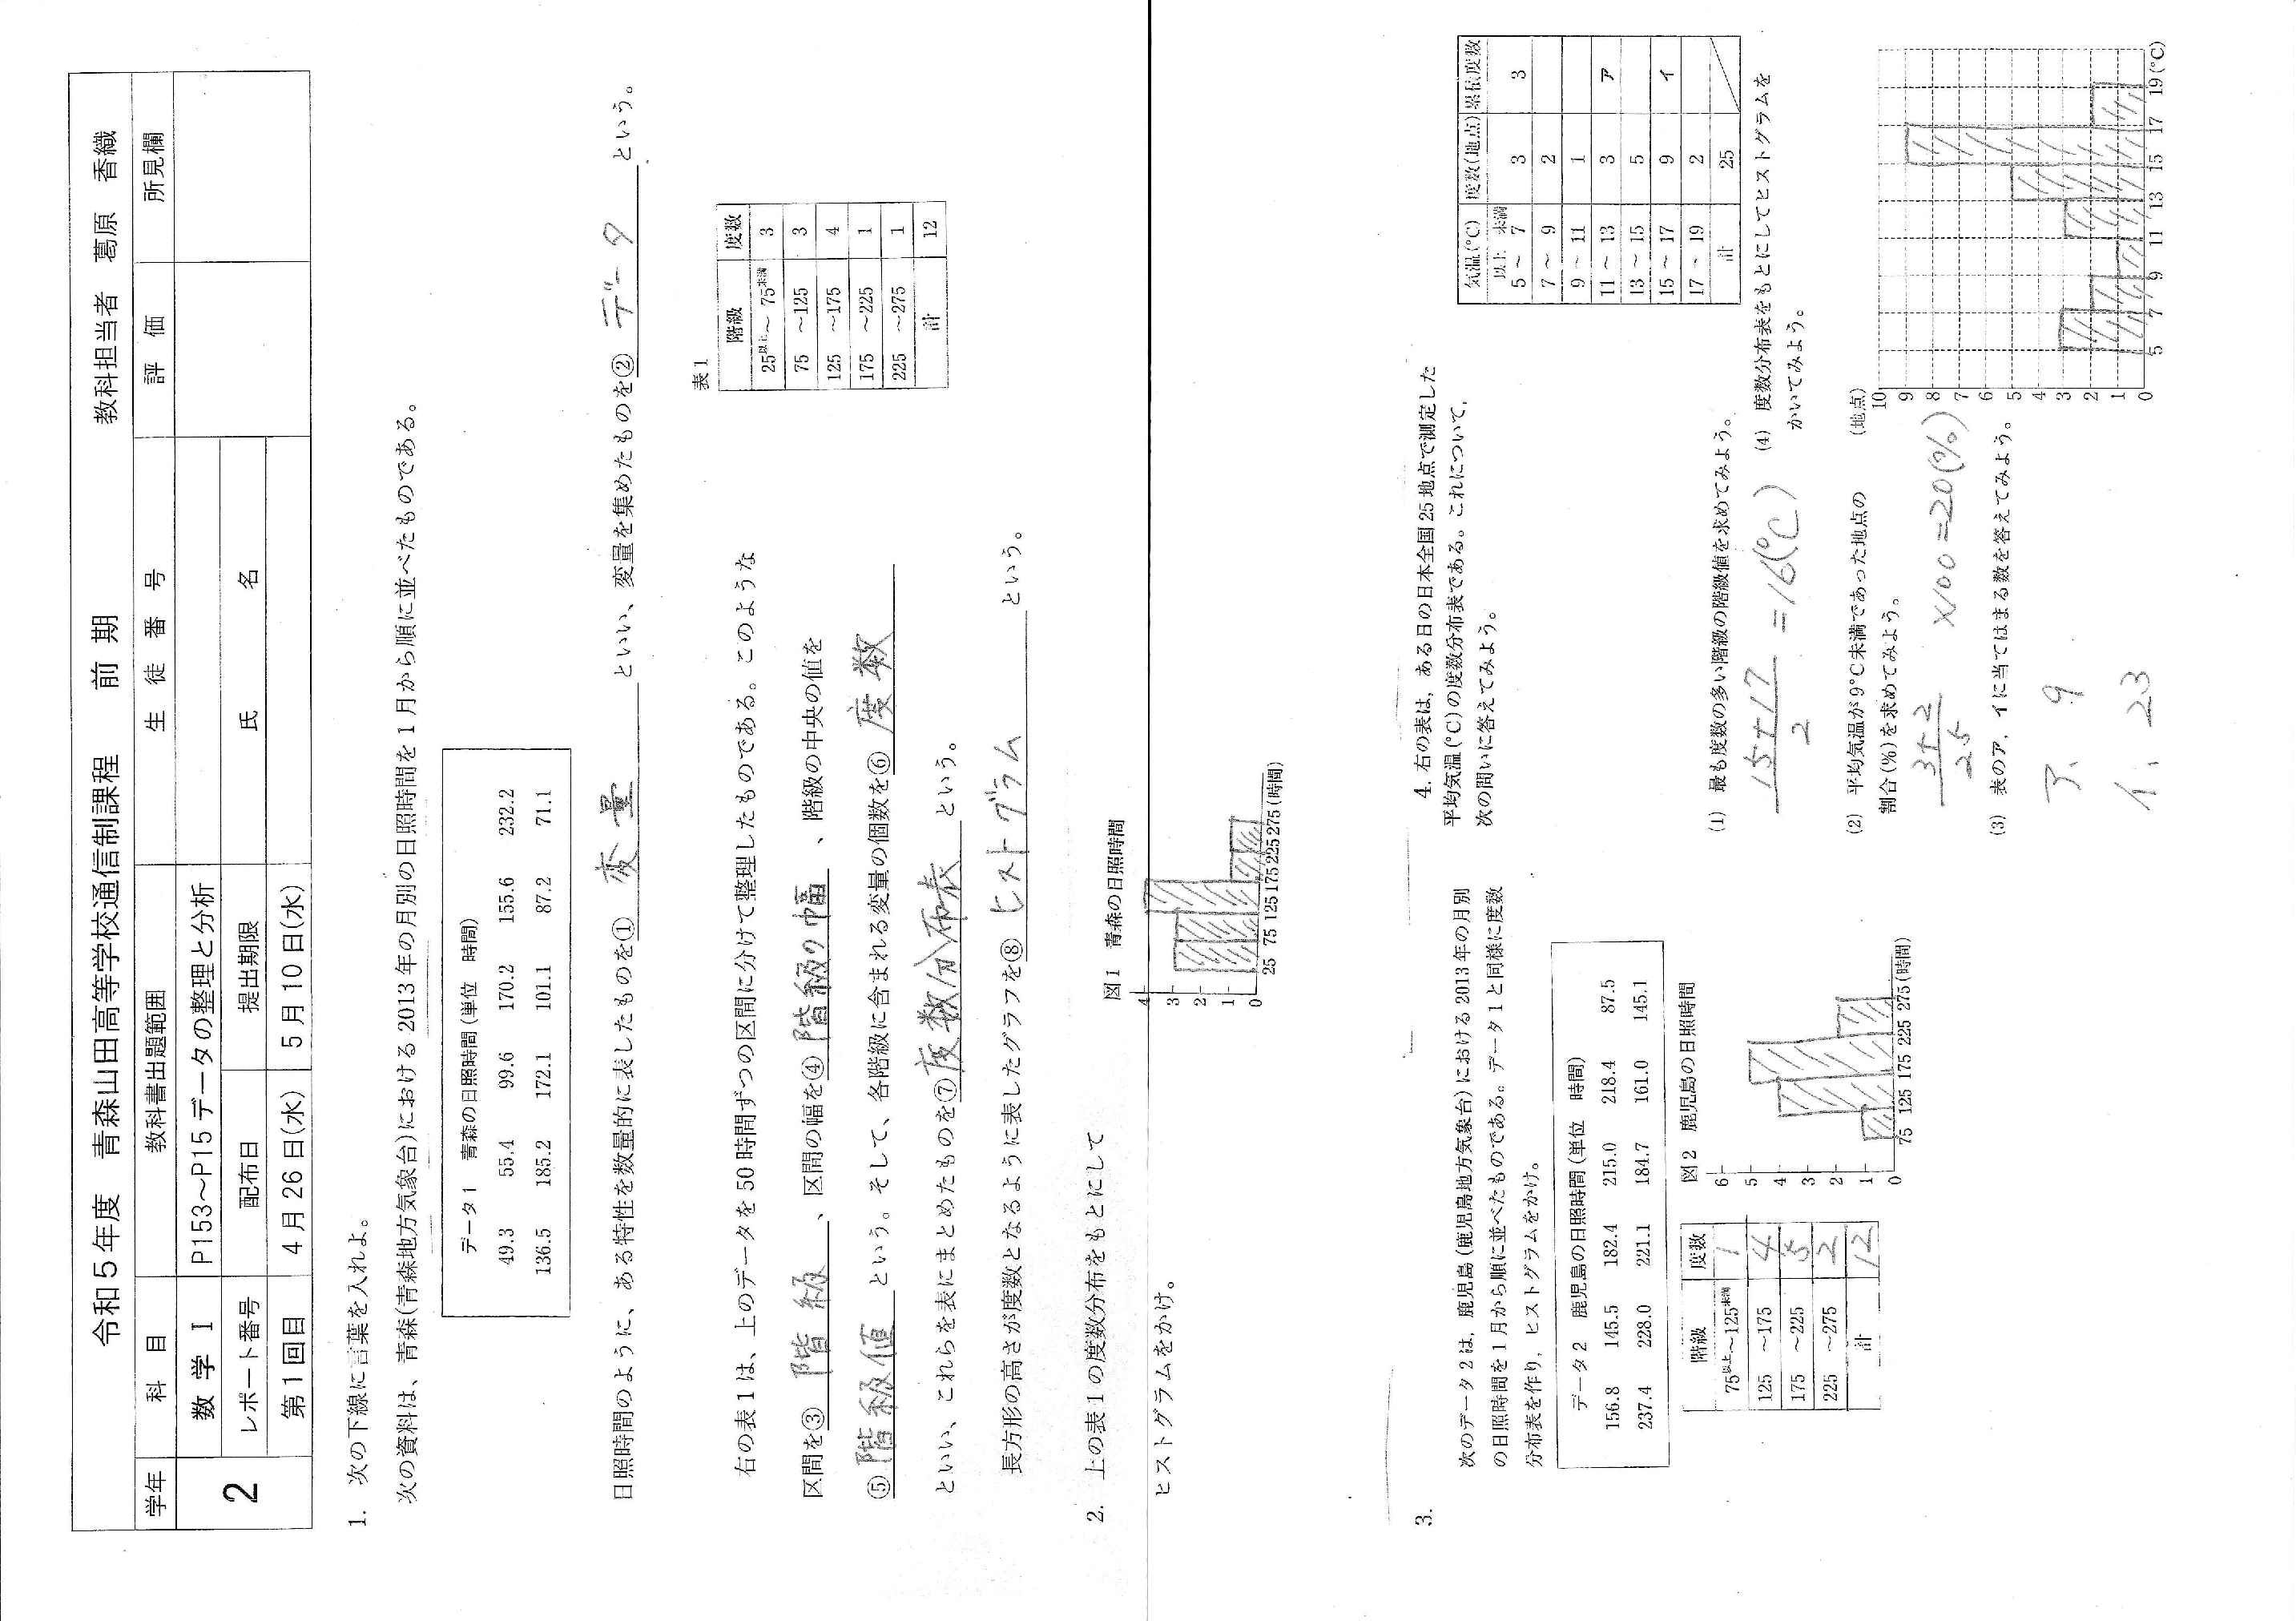 令和5年度 青森山田高等学校通信制課程 前 期 教科担当者 葛原 香織
学年 科 目 教科書出題範囲 生 徒 番 号 評 価 所見欄
2 数 学 Ⅰ P153～P15 データの整理と分析
レポート番号 配布日 提出期限 氏 名
第1回目 4月26日(水) 5月10日(水)
1. 次の下線に言葉を入れよ。
次の資料は、青森(青森地方気象台)における 2013 年の月別の日照時間を 1 月から順に並べたものである。
データ1 青森の日照時間(単位 時間)
49.3 55.4 99.6 170.2 155.6 232.2
136.5 185.2 172.1 101.1 87.2 71.1
日照時間のように、ある特性を数量的に表したものを① 変量 といい、変量を集めたものを② データ という。
右の表1は、上のデータを 50 時間ずつの区間に分けて整理したものである。このような
区間を③ 階級 、区間の幅を④ 階級の幅 、階級の中央の値を
⑤ 階級値 という。そして、各階級に含まれる変量の個数を⑥ 度数
といい、これらを表にまとめたものを⑦ 度数分布表 という。
長方形の高さが度数となるように表したグラフを⑧ ヒストグラム という。
表1
階級 度数
25以上～ 75未満 3
75 ～125 3
125 ～175 4
175 ～225 1
225 ～275 1
計 12
2. 上の表1の度数分布をもとにして
ヒストグラムをかけ。
図1 青森の日照時間
4
3
2
1
0
25 75 125 175 225 275 (時間)
3.
次のデータ2は，鹿児島(鹿児島地方気象台)における 2013 年の月別
の日照時間を1月から順に並べたものである。データ1と同様に度数
分布表を作り，ヒストグラムをかけ。
データ2 鹿児島の日照時間(単位 時間)
156.8 145.5 182.4 215.0 218.4 87.5
237.4 228.0 221.1 184.7 161.0 145.1
階級 度数
75以上～125未満 1
125 ～175 4
175 ～225 5
225 ～275 2
計 12
図2 鹿児島の日照時間
6
5
4
3
2
1
0
75 125 175 225 275 (時間)
4. 右の表は，ある日の日本全国 25 地点で測定した
平均気温(℃)の度数分布表である。これについて，
次の問いに答えてみよう。
気温(℃) 度数(地点) 累積度数
以上 未満
5 ～ 7 3 3
7 ～ 9 2
9 ～ 11 1
11 ～ 13 3 ア
13 ～ 15 5
15 ～ 17 9 イ
17 ～ 19 2
計 25
(1) 最も度数の多い階級の階級値を求めてみよう。
15+17
2
=16(℃)
(2) 平均気温が9℃未満であった地点の
割合(%)を求めてみよう。
3+2
25
×100=20(%)
(3) 表のア，イに当てはまる数を答えてみよう。
ア、 9
イ、 23
(4) 度数分布表をもとにしてヒストグラムを
かいてみよう。
(地点)
10
9
8
7
6
5
4
3
2
1
0
5 7 9 11 13 15 17 19 (℃)